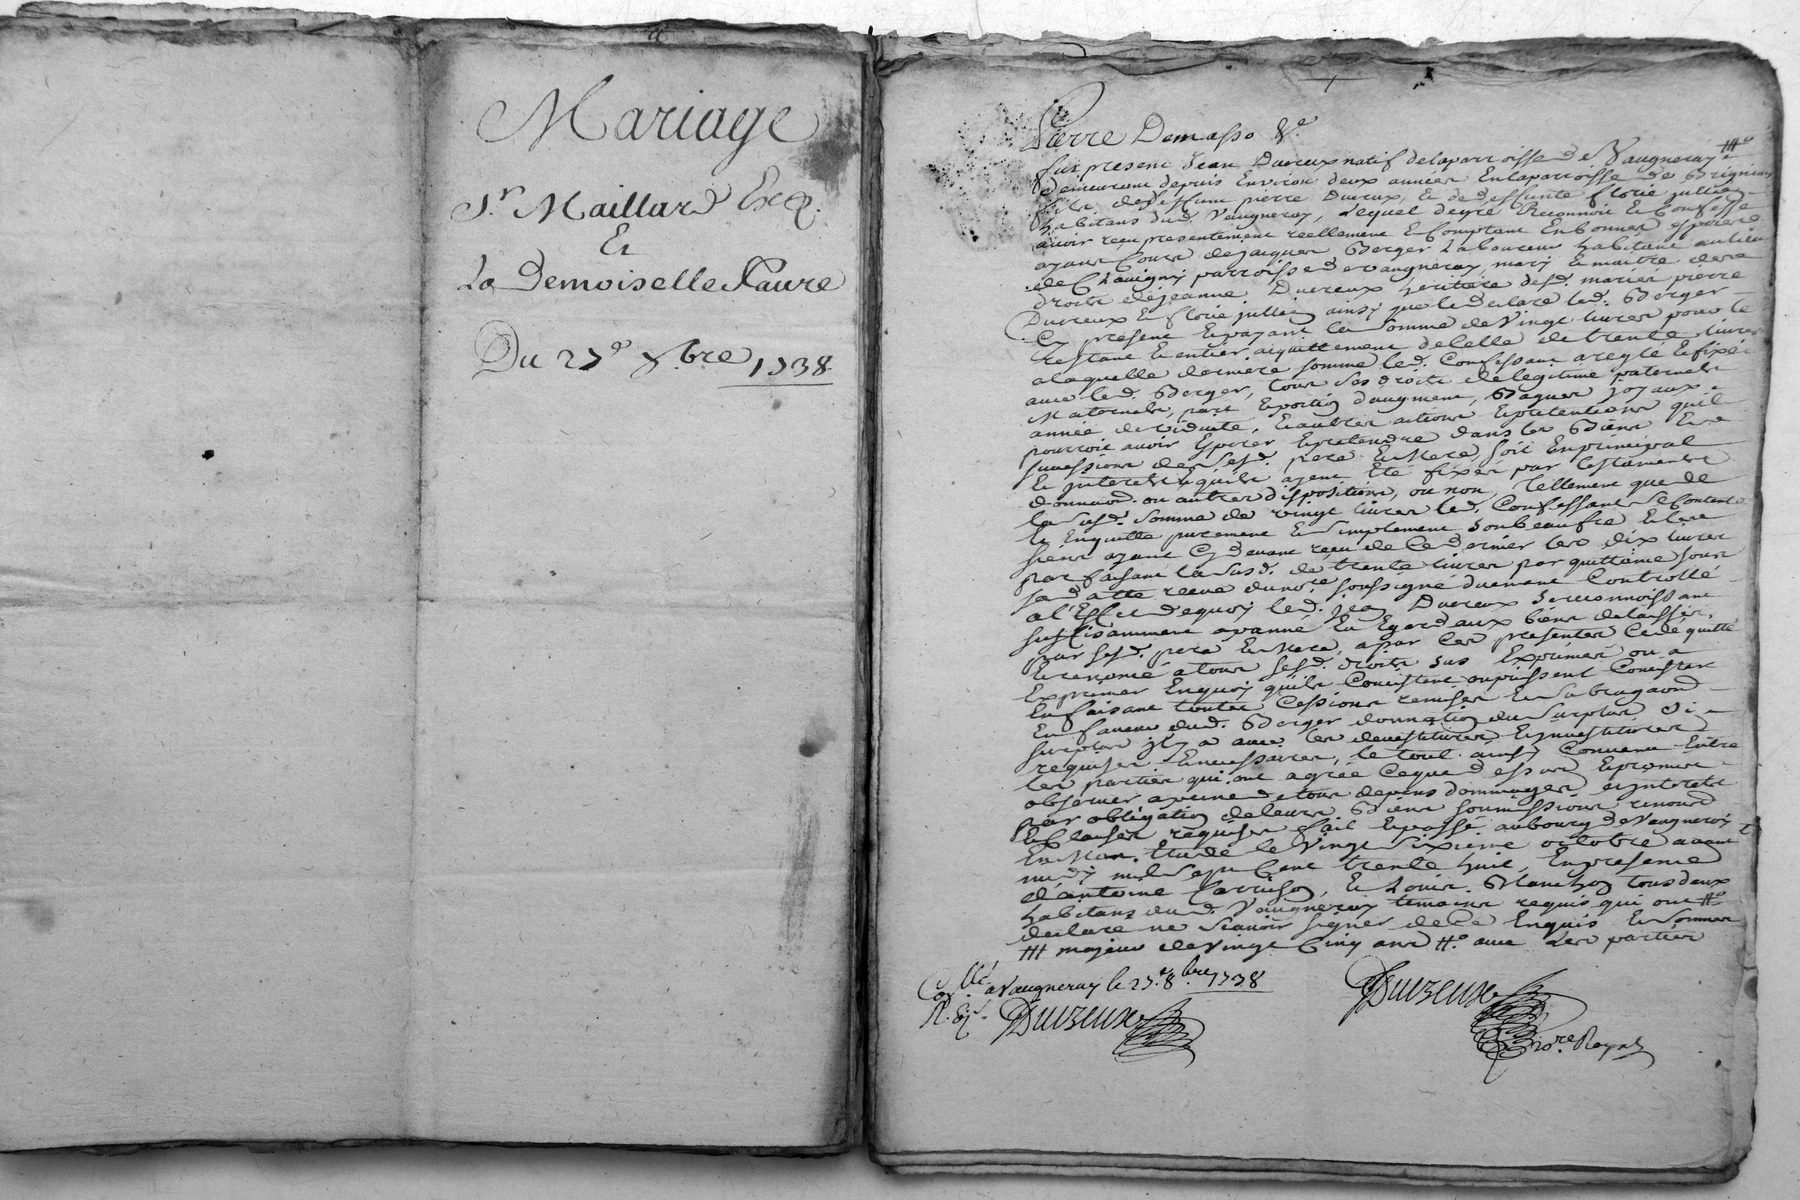 Mariage
Sr Maillard
Et
La Demoiselle Faure
Du 27e 8.bre 1738
Pierre Demasso &.a
fut present Jean Duvreux natif de la parroisse de Vaugneray
demeurant depuis Environ deux années En la parroisse de Brignais
fils de deffunt pierre Duvreux, et de deffunte florie jullien
habitans dud. Vaugneray, Lequel de gré Reconnoit Et Confesse
avoir receu presentement reellement Et Comptant En bonnes Especes
ayant Cours de Jacques Berger Laboureur habitant au lieu
de Chavigny parroisse de vaugneray, mary Et maitre des
droits de jeanne Duvreux heritiere desd. mariés pierre
Duvreux Et florie jullien ainsy que le declare led. Berger
Cy present Et payant la somme de Vingt livres pour le
restant Et entier aquittement de celle de trente livres
a laquelle derniere somme led. Confessant a reglé Et fixé
avec led. Berger, tous ses droits de legitime paternels
Maternels, part Et portion d'augment, Bagues joyaux
année de viduité, Et autres actions Et pretentions qu'il
pourroit avoir Esperer Et pretendre dans les Biens Et
successions de sesd. pere Et Mere, soit En principal
Et interets qu'ils ayent Eté fixés par testaments
donnaons. ou autres dispositions, ou non, tellement que de
la susd. somme de vingt livres led. Confessant se Contente
Et En quitte purement Et simplement son beaufre Et les
siens ayant Cy devant receu de Ce dernier les dix livres
parfaisant la susd. de trente livres par quittance sous
sa datte receue du no.re soussigné duement Controllé
a l'Effet dequoy led. jean Duvreux se reconnoissant
suffisamment apanné Eu Egard aux biens delaissés
par sesd. pere Et Mere, a par Ces presentes Cedé quitté
Et renoncé a tous sesd. droits sus Exprimés ou a
Exprimer En quoy qu'ils Consistent ou puissent Consister
En faisant toutes Cessions remises Et subrogaons
En faveur dud. Berger donnation du surplus si
surplus il y a avec les devestitures Et investitures
requises Et necessaires, le tout ainsy Convenu Entre
les parties qui ont agrée Ceque dessus Et promis
observer a peine de tous depens dommages et interets
par obligation de leurs Biens soumissions renonçons
Et Clauses requises fait Et passé au bourg de Vaugneray
En Mon Etude le Vingt sixieme octobre avant
midy mil sept Cent trente huit, En presence
d'antoine, Et Louis Blanchon tous deux
habitans dud. Vaugneray temoins requis qui ont
declaré ne scavoir signer de Ce Enquis Et sommés
majeur de vingt Cinq ans avec Les parties
Co.llé a Vaugneray le 27.e 8.bre 1738
Duvreux
Duvreux
no.re Royal